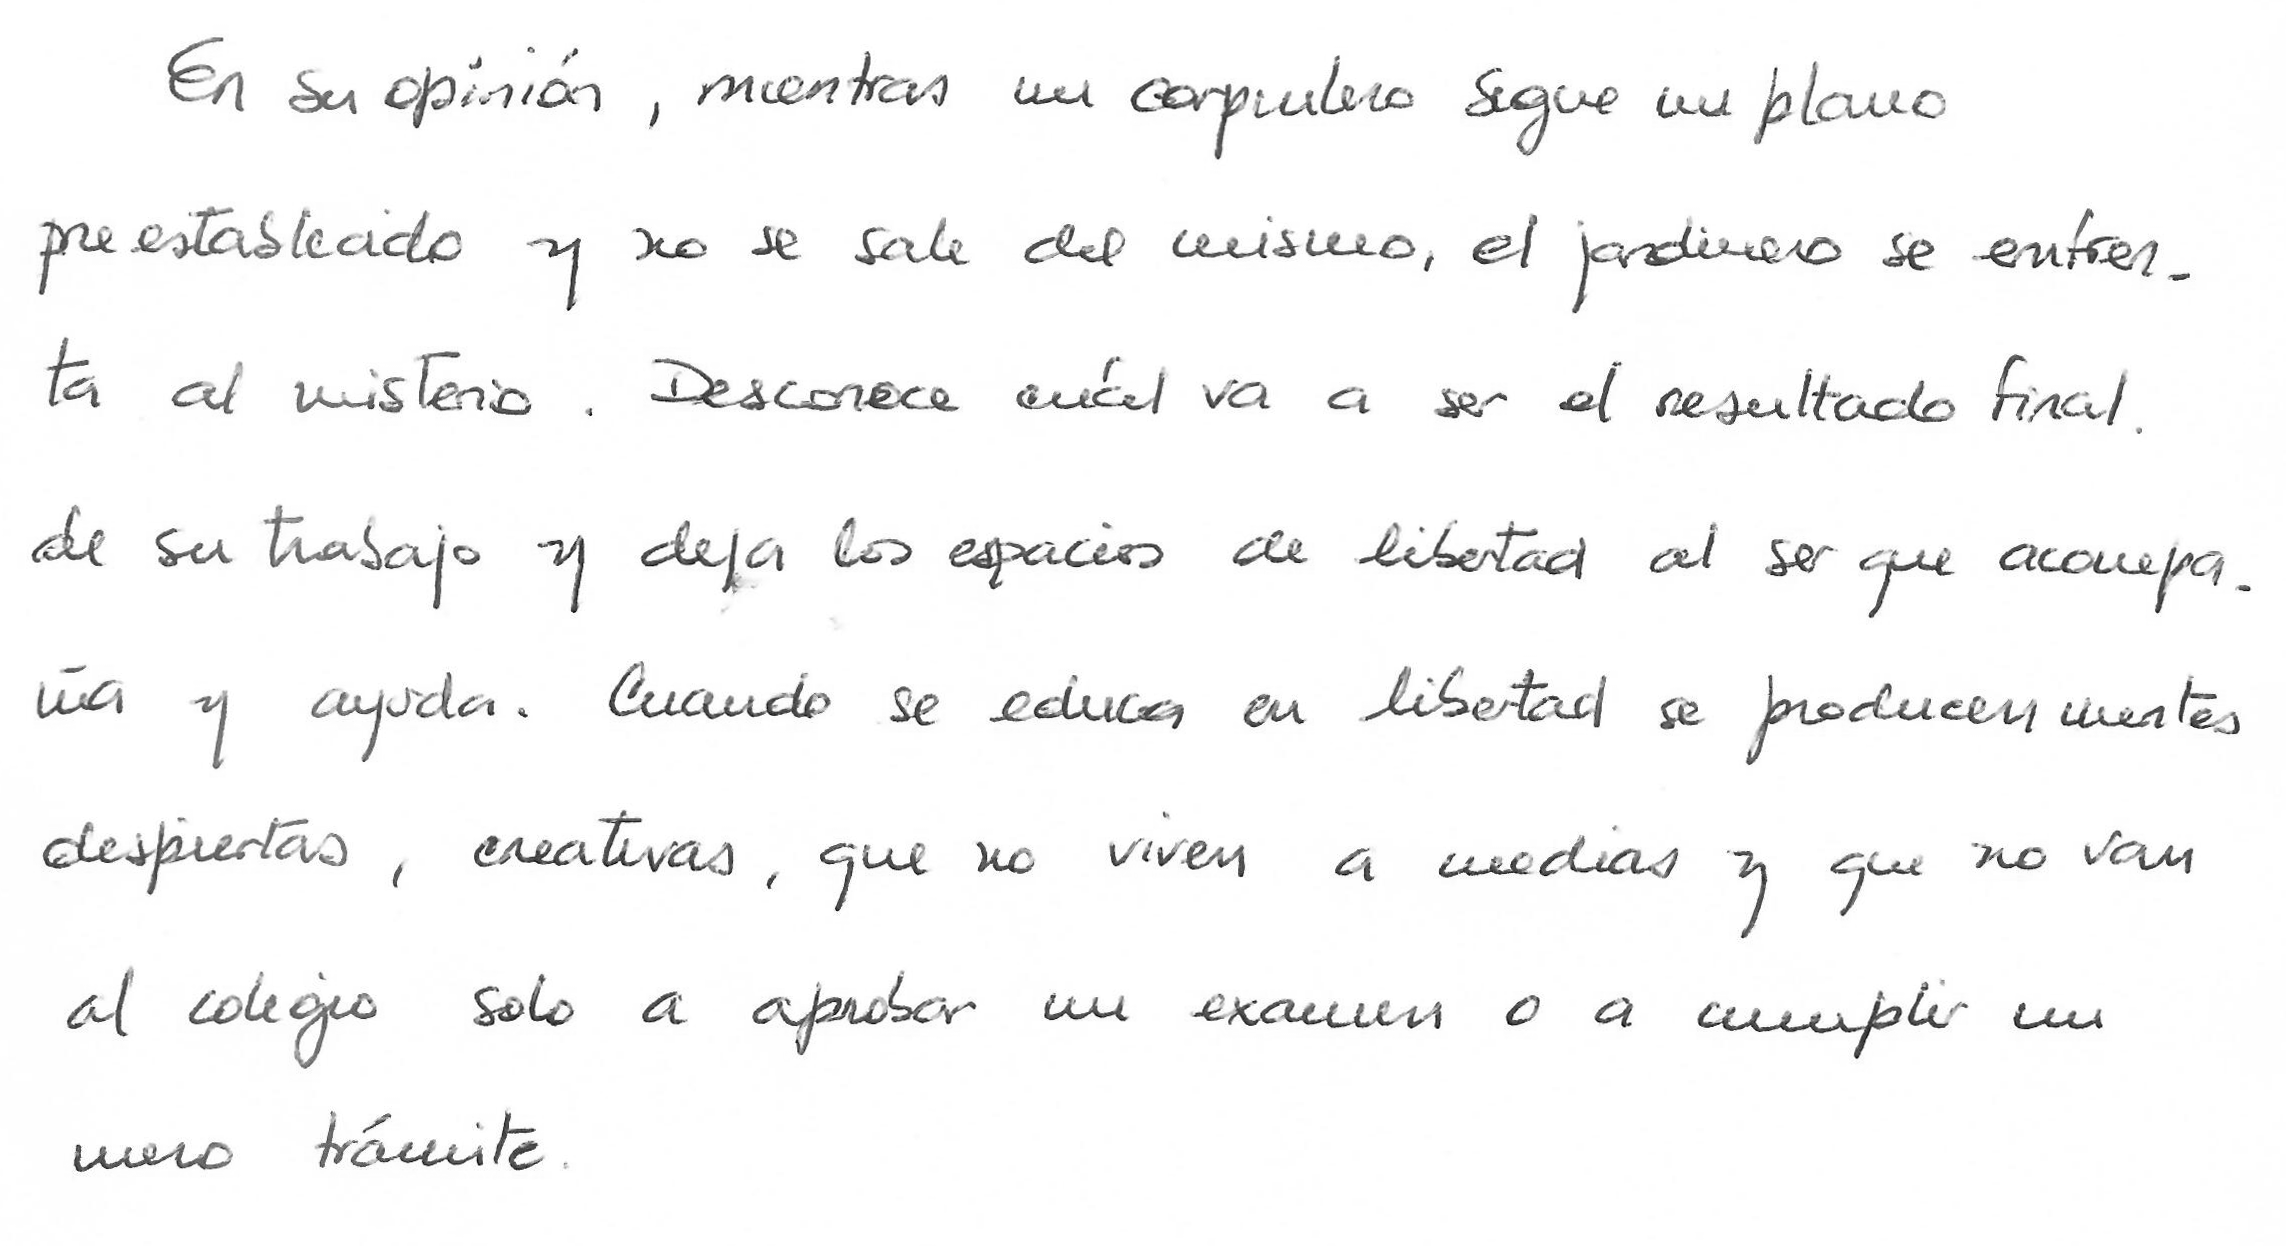 En su opinión, mientras un carpintero sigue un plano
preestablecido y no se sale del mismo, el jardinero se enfren-
ta al misterio. Desconoce cuál va a ser el resultado final.
de su trabajo y deja los espacios de libertad al ser que acompa-
ña y ayuda. Cuando se educa en libertad se producen mentes
despiertas, creativas, que no viven a medias y que no van
al colegio solo a aprobar un examen o a cumplir un
mero trámite.